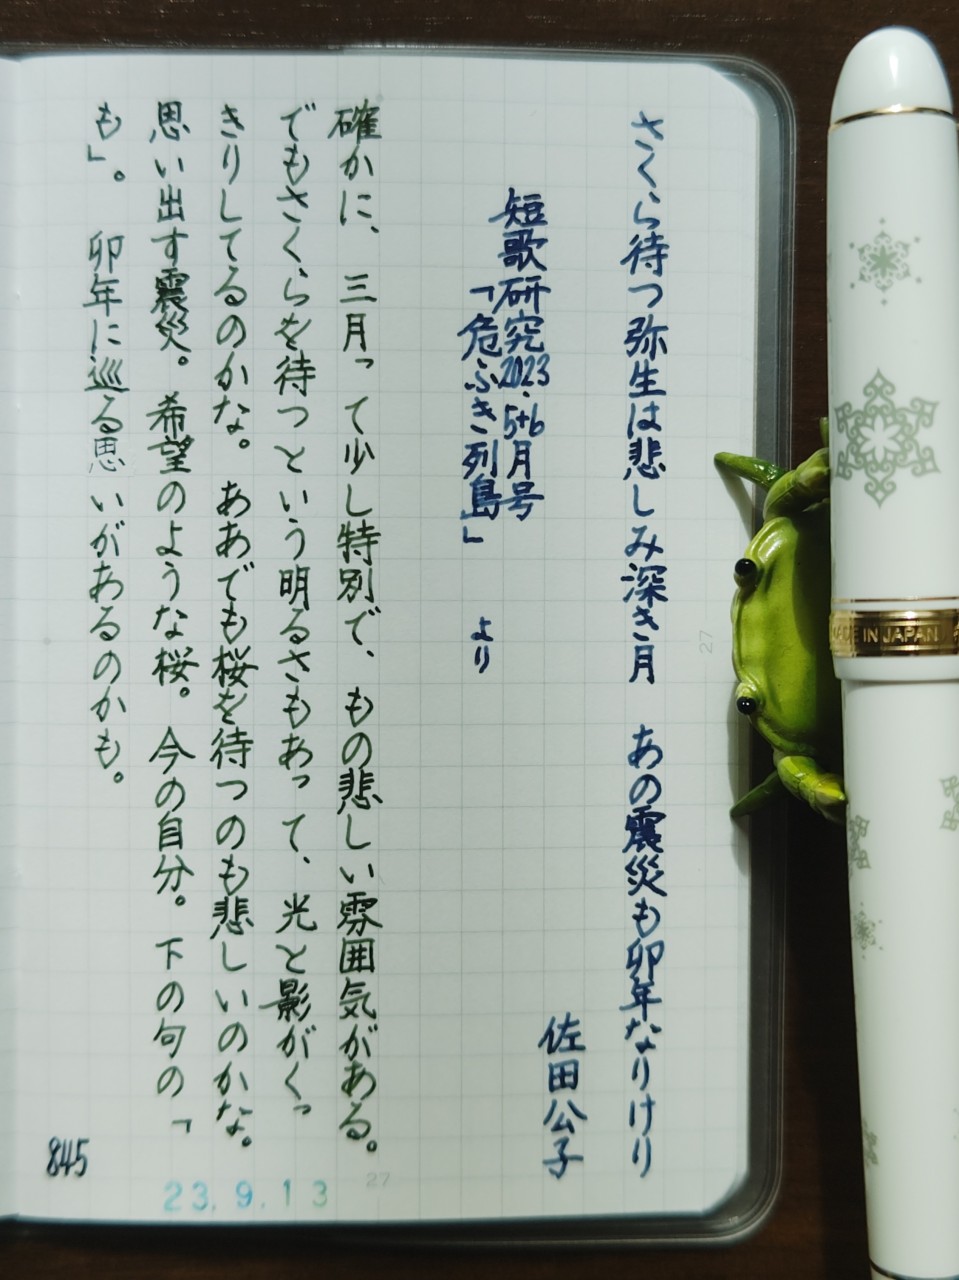 さくら待つ弥生は悲しみ深き月　あの震災も卯年なりけり
佐田公子
短歌研究2023.5+6月号
「危ふき列島」　より
確かに、三月って少し特別で、もの悲しい雰囲気がある。
でもさくらを待つという明るさもあって、光と影がくっ
きりしてるのかな。ああでも桜を待つのも悲しいのかな。
思い出す震災。希望のような桜。今の自分。下の句の「
も」。卯年に巡る思いがあるのかも。
845
23.9.13
27
27
MADE IN JAPAN